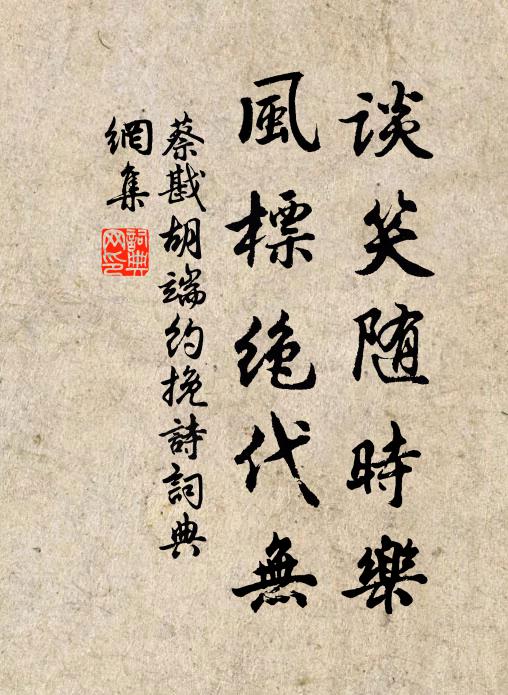 談笑随時樂
風標絶代無
蔡戡胡端約挽詩詞典
網集
詞典
网印